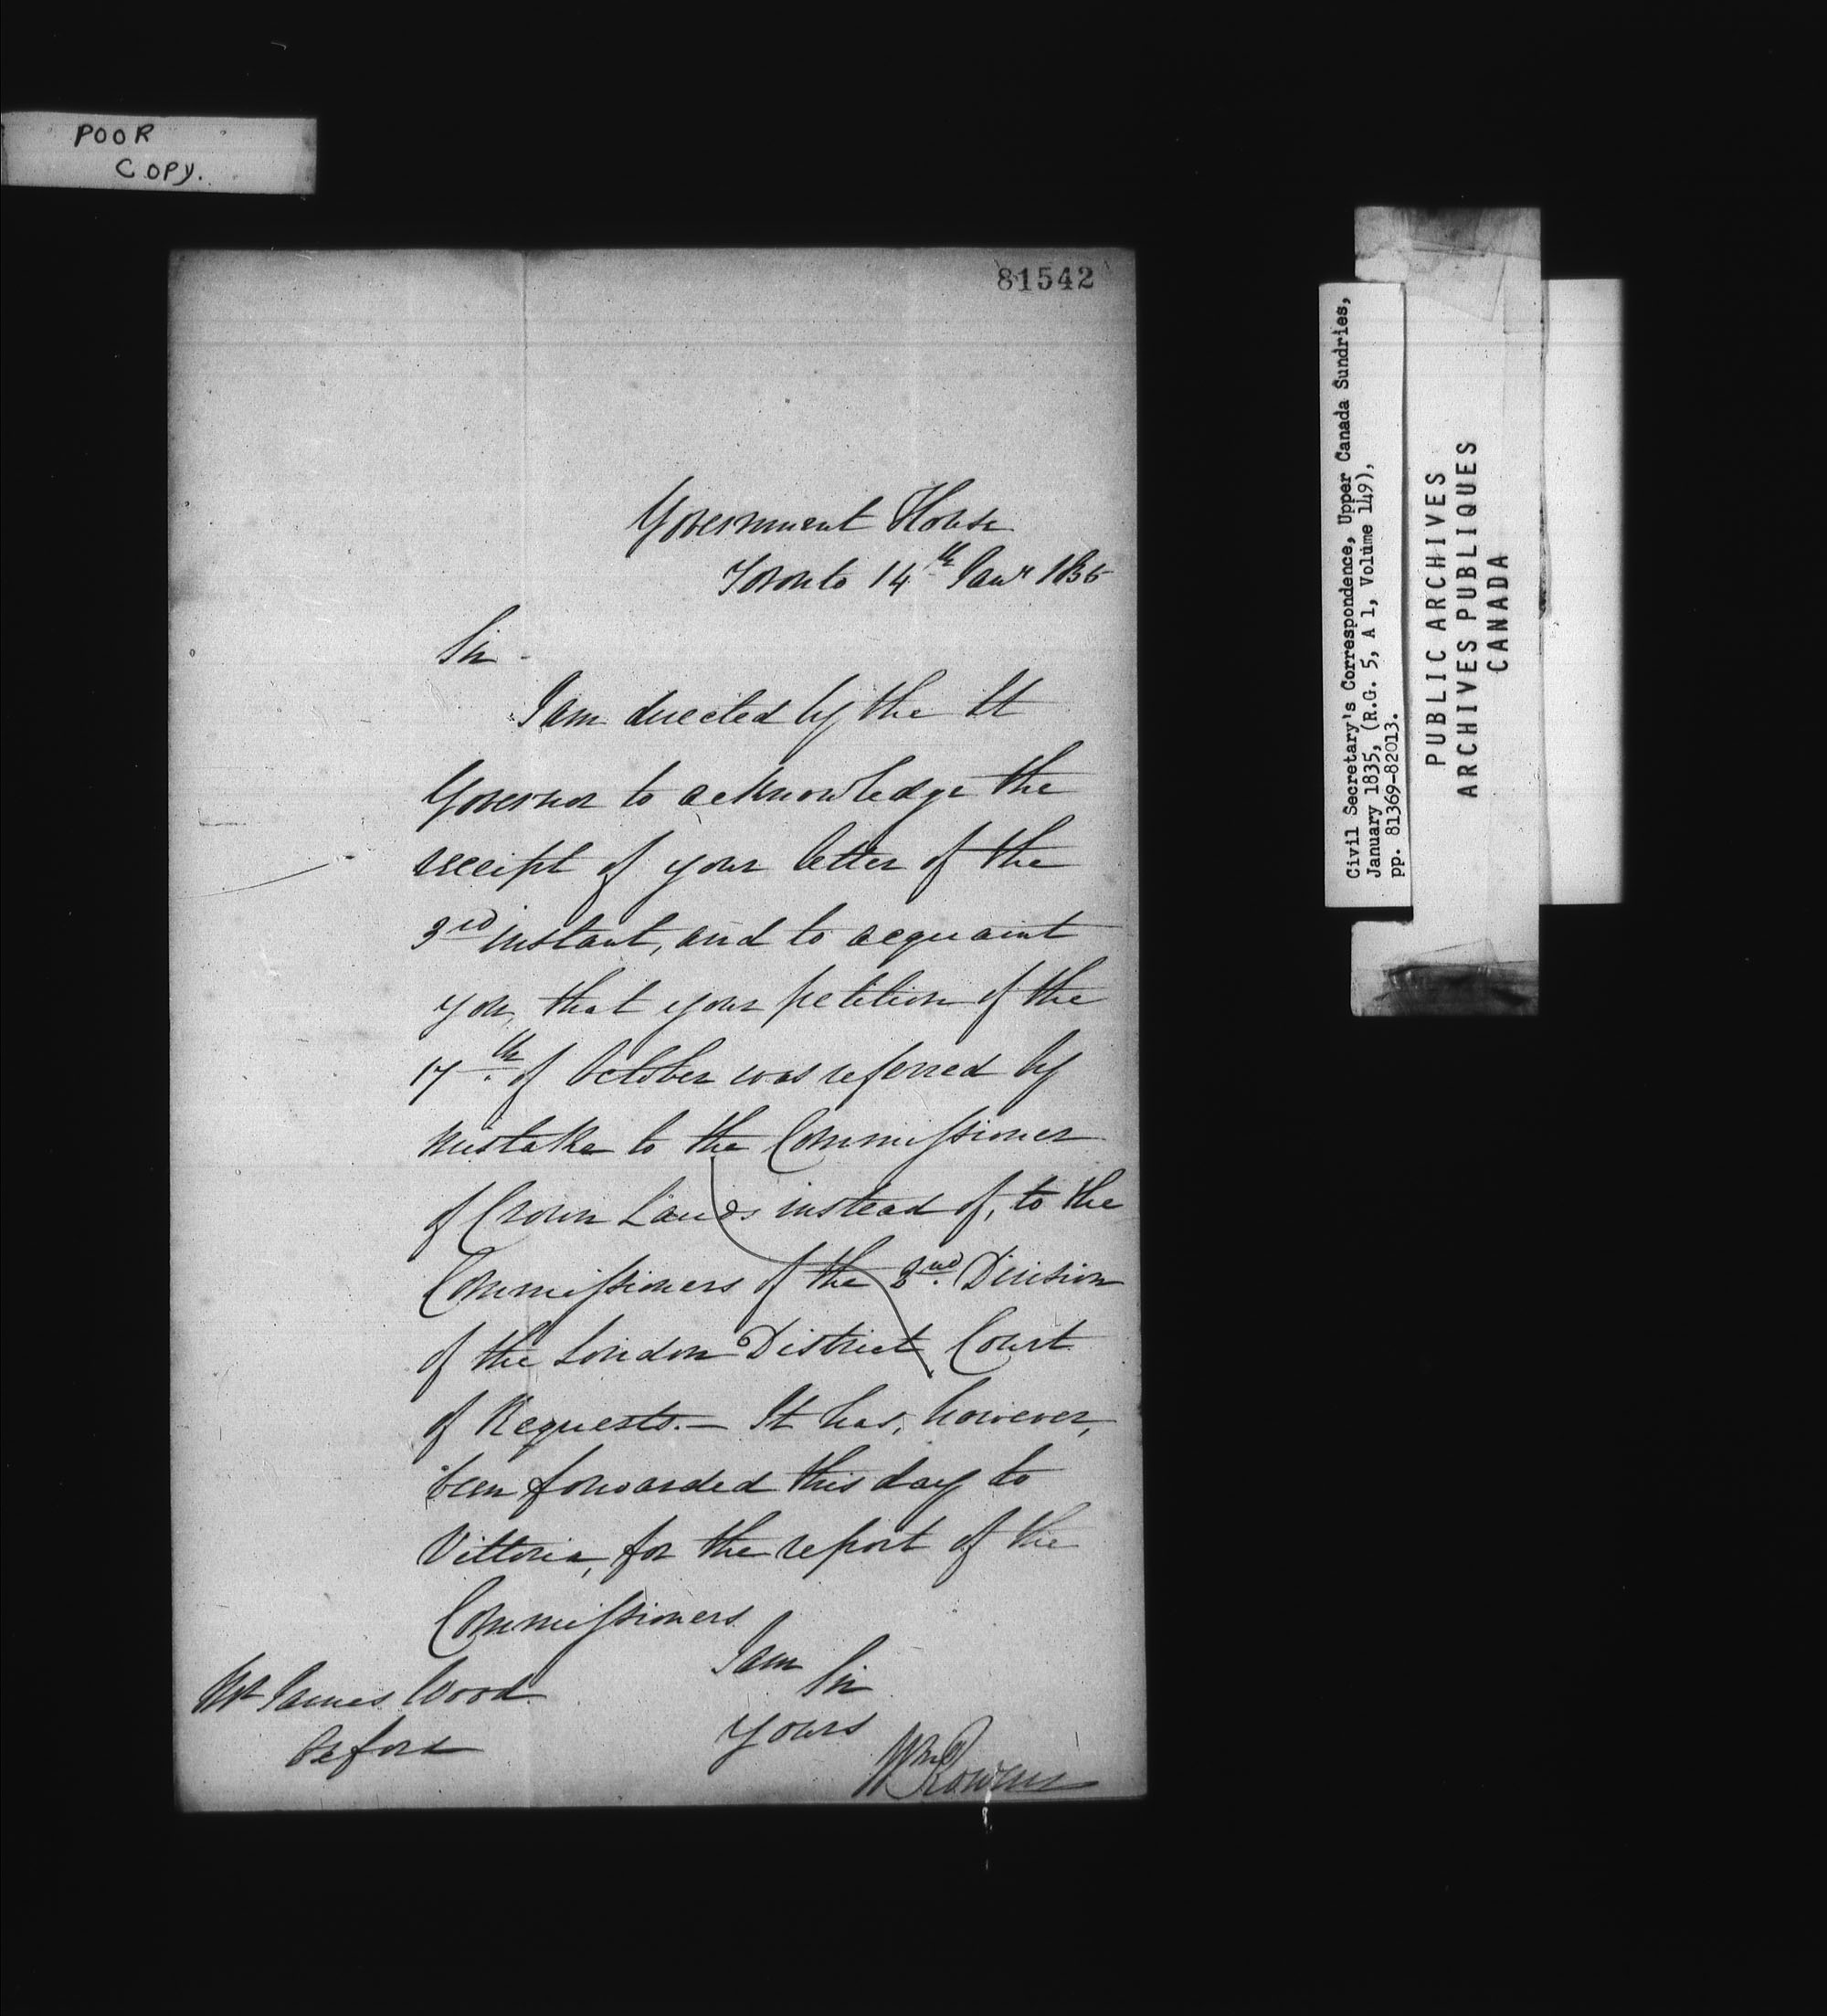 POOR
COPY.
81542
Government House
Toronto 14th Jany 1835
Sir -
I am directed by the Lt
Governor to acknowledge the
receipt of your letter of the
3rd instant, and to acquaint
you, that your petition of the
17th of October was referred by
mistake to the Commissioner
of Crown Lands instead of, to the
Commissioners of the 3nd Division
of the London District Court
of Requests.— It has, however,
been forwarded this day to
Vittoria, for the report of the
Commissioners
I am
Sir
Yours
Wm Rowan
Mr James Wood
Oxford
Civil Secretary's Correspondence, Upper Canada Sundries,
January 1835, (R.G. 5, A 1, Volume 149),
pp. 81369-82013.
PUBLIC ARCHIVES
ARCHIVES PUBLIQUES
CANADA